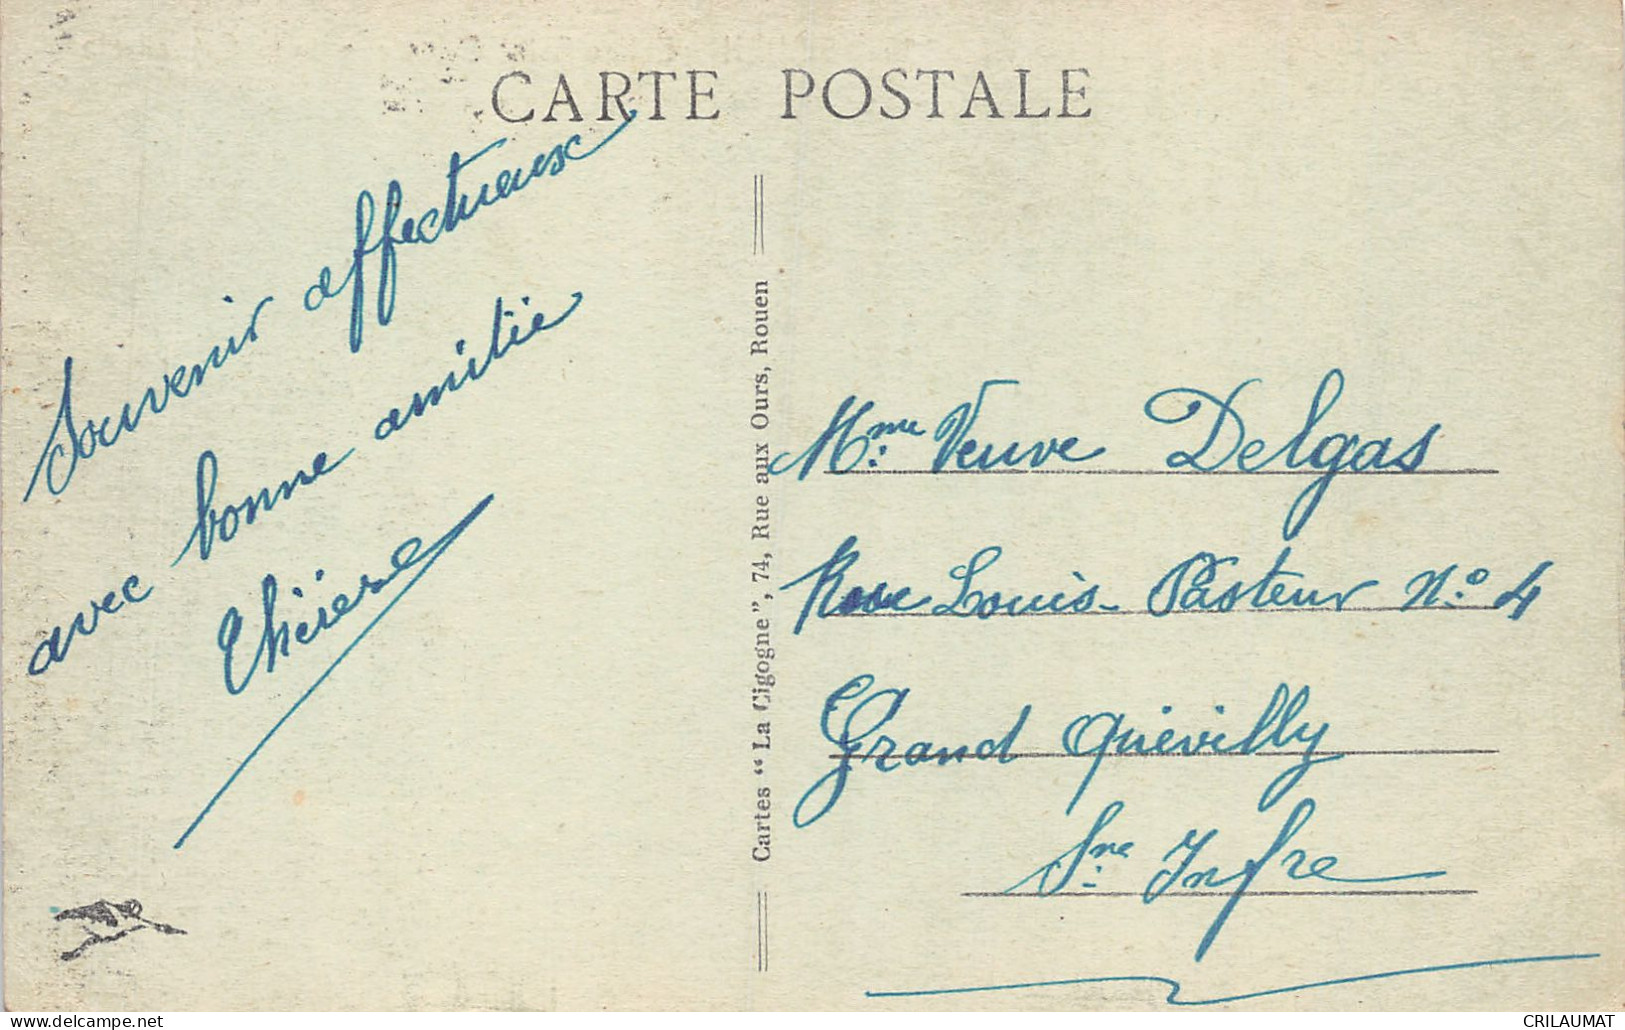 CARTE POSTALE
Souvenir affectueux
avec bonne amitie
Thérèse
Cartes “ La Cigogne ”, 74, Rue aux Ours, Rouen
Mme Veuve Delgas
Rue Louis-Pasteur N° 4
Grand Quevilly
Sne Infre
www.delcampe.net
CRILAUMAT